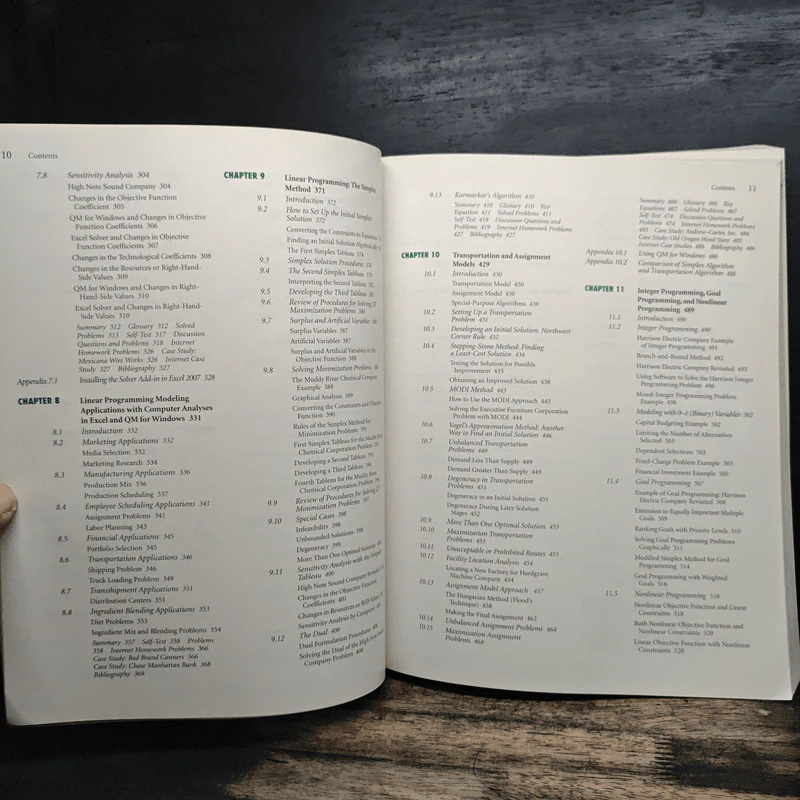 10 Contents
7.8 Sensitivity Analysis 304
High Note Sound Company 304
Changes in the Objective Function
Coefficient 305
QM for Windows and Changes in Objective
Function Coefficients 306
Excel Solver and Changes in Objective
Function Coefficients 307
Changes in the Technological Coefficients 308
Changes in the Resources or Right-Hand-
Side Values 309
QM for Windows and Changes in Right-
Hand-Side Values 310
Excel Solver and Changes in Right-Hand-
Side Values 310
Summary 312 Glossary 312 Solved
Problems 313 Self-Test 317 Discussion
Questions and Problems 318 Internet
Homework Problems 326 Case Study:
Mexicana Wire Works 326 Internet Case
Study 327 Bibliography 327
Appendix 7.1 Installing the Solver Add-in in Excel 2007 328
CHAPTER 8 Linear Programming Modeling
Applications with Computer Analyses
in Excel and QM for Windows 331
8.1 Introduction 332
8.2 Marketing Applications 332
Media Selection 332
Marketing Research 334
8.3 Manufacturing Applications 336
Production Mix 336
Production Scheduling 337
8.4 Employee Scheduling Applications 341
Assignment Problems 341
Labor Planning 343
8.5 Financial Applications 345
Portfolio Selection 345
8.6 Transportation Applications 346
Shipping Problem 346
Truck Loading Problem 349
8.7 Transshipment Applications 351
Distribution Centers 351
8.8 Ingredient Blending Applications 353
Diet Problems 353
Ingredient Mix and Blending Problems 354
Summary 357 Self-Test 358 Problems
358 Internet Homework Problems 366
Case Study: Red Brand Canners 366
Case Study: Chase Manhattan Bank 368
Bibliography 369
CHAPTER 9 Linear Programming: The Simplex
Method 371
9.1 Introduction 372
9.2 How to Set Up the Initial Simplex
Solution 372
Converting the Constraints to Equations
Finding an Initial Solution Algebraically
The First Simplex Tableau 374
9.3 Simplex Solution Procedures 378
9.4 The Second Simplex Tableau 379
Interpreting the Second Tableau 382
9.5 Developing the Third Tableau 383
9.6 Review of Procedures for Solving LP
Maximization Problems 386
9.7 Surplus and Artificial Variables 386
Surplus Variables 387
Artificial Variables 387
Surplus and Artificial Variables in the
Objective Function 388
9.8 Solving Minimization Problems
The Muddy River Chemical Company
Example 388
Graphical Analysis 389
Converting the Constraints and Objective
Function 390
Rules of the Simplex Method for
Minimization Problems 391
First Simplex Tableau for the Muddy River
Chemical Corporation Problem
Developing a Second Tableau
Developing a Third Tableau
Fourth Tableau for the Muddy River
Chemical Corporation Problem
9.9 Review of Procedures for Solving LP
Minimization Problems 397
9.10 Special Cases 398
Infeasibility 398
Unbounded Solutions 398
Degeneracy 399
More Than One Optimal Solution
9.11 Sensitivity Analysis with the Simplex
Tableau 400
High Note Sound Company Revisited
Changes in the Objective Function
Coefficients 401
Changes in Resources or RHS Values
Sensitivity Analysis by Computer
9.12 The Dual 406
Dual Formulation Procedures 408
Solving the Dual of the High Note Sound
Company Problem 408
Contents 11
9.13 Karmarkar's Algorithm 410
Summary 410 Glossary 410 Key
Equation 411 Solved Problems 411
Self-Test 418 Discussion Questions and
Problems 419 Internet Homework Problems
427 Bibliography 427
CHAPTER 10 Transportation and Assignment
Models 429
10.1 Introduction 430
Transportation Model 430
Assignment Model 430
Special-Purpose Algorithms 430
10.2 Setting Up a Transportation
Problem 431
10.3 Developing an Initial Solution: Northwest
Corner Rule 432
10.4 Stepping-Stone Method: Finding
a Least-Cost Solution 434
Testing the Solution for Possible
Improvement 435
Obtaining an Improved Solution 438
10.5 MODI Method 443
How to Use the MODI Approach 443
Solving the Executive Furniture Corporation
Problem with MODI 444
10.6 Vogel's Approximation Method: Another
Way to Find an Initial Solution 446
10.7 Unbalanced Transportation
Problems 449
Demand Less Than Supply 449
Demand Greater Than Supply 449
10.8 Degeneracy in Transportation
Problems 451
Degeneracy in an Initial Solution 451
Degeneracy During Later Solution
Stages 452
10.9 More Than One Optimal Solution 453
10.10 Maximization Transportation
Problems 453
10.11 Unacceptable or Prohibited Routes 453
10.12 Facility Location Analysis 454
Locating a New Factory for Hardgrave
Machine Company 454
10.13 Assignment Model Approach 457
The Hungarian Method (Flood's
Technique) 458
Making the Final Assignment 462
10.14 Unbalanced Assignment Problems 464
10.15 Maximization Assignment
Problems 464
Summary 466 Glossary 466 Key
Equations 467 Solved Problems 467
Self-Test 474 Discussion Questions and
Problems 474 Internet Homework Problems
483 Case Study: Andrew–Carter, Inc. 484
Case Study: Old Oregon Wood Store 485
Internet Case Studies 486 Bibliography 486
Appendix 10.1 Using QM for Windows 486
Appendix 10.2 Comparison of Simplex Algorithm
and Transportation Algorithm 488
CHAPTER 11 Integer Programming, Goal
Programming, and Nonlinear
Programming 489
11.1 Introduction 490
11.2 Integer Programming 490
Harrison Electric Company Example
of Integer Programming 491
Branch-and-Bound Method 492
Harrison Electric Company Revisited 493
Using Software to Solve the Harrison Integer
Programming Problem 496
Mixed-Integer Programming Problem
Example 498
11.3 Modeling with 0–1 (Binary) Variables 502
Capital Budgeting Example 502
Limiting the Number of Alternatives
Selected 503
Dependent Selections 503
Fixed-Charge Problem Example 503
Financial Investment Example 505
11.4 Goal Programming 507
Example of Goal Programming: Harrison
Electric Company Revisited 508
Extension to Equally Important Multiple
Goals 509
Ranking Goals with Priority Levels 510
Solving Goal Programming Problems
Graphically 511
Modified Simplex Method for Goal
Programming 514
Goal Programming with Weighted
Goals 516
11.5 Nonlinear Programming 518
Nonlinear Objective Function and Linear
Constraints 518
Both Nonlinear Objective Function and
Constraints 520
Linear Objective Function with Nonlinear
Constraints 520